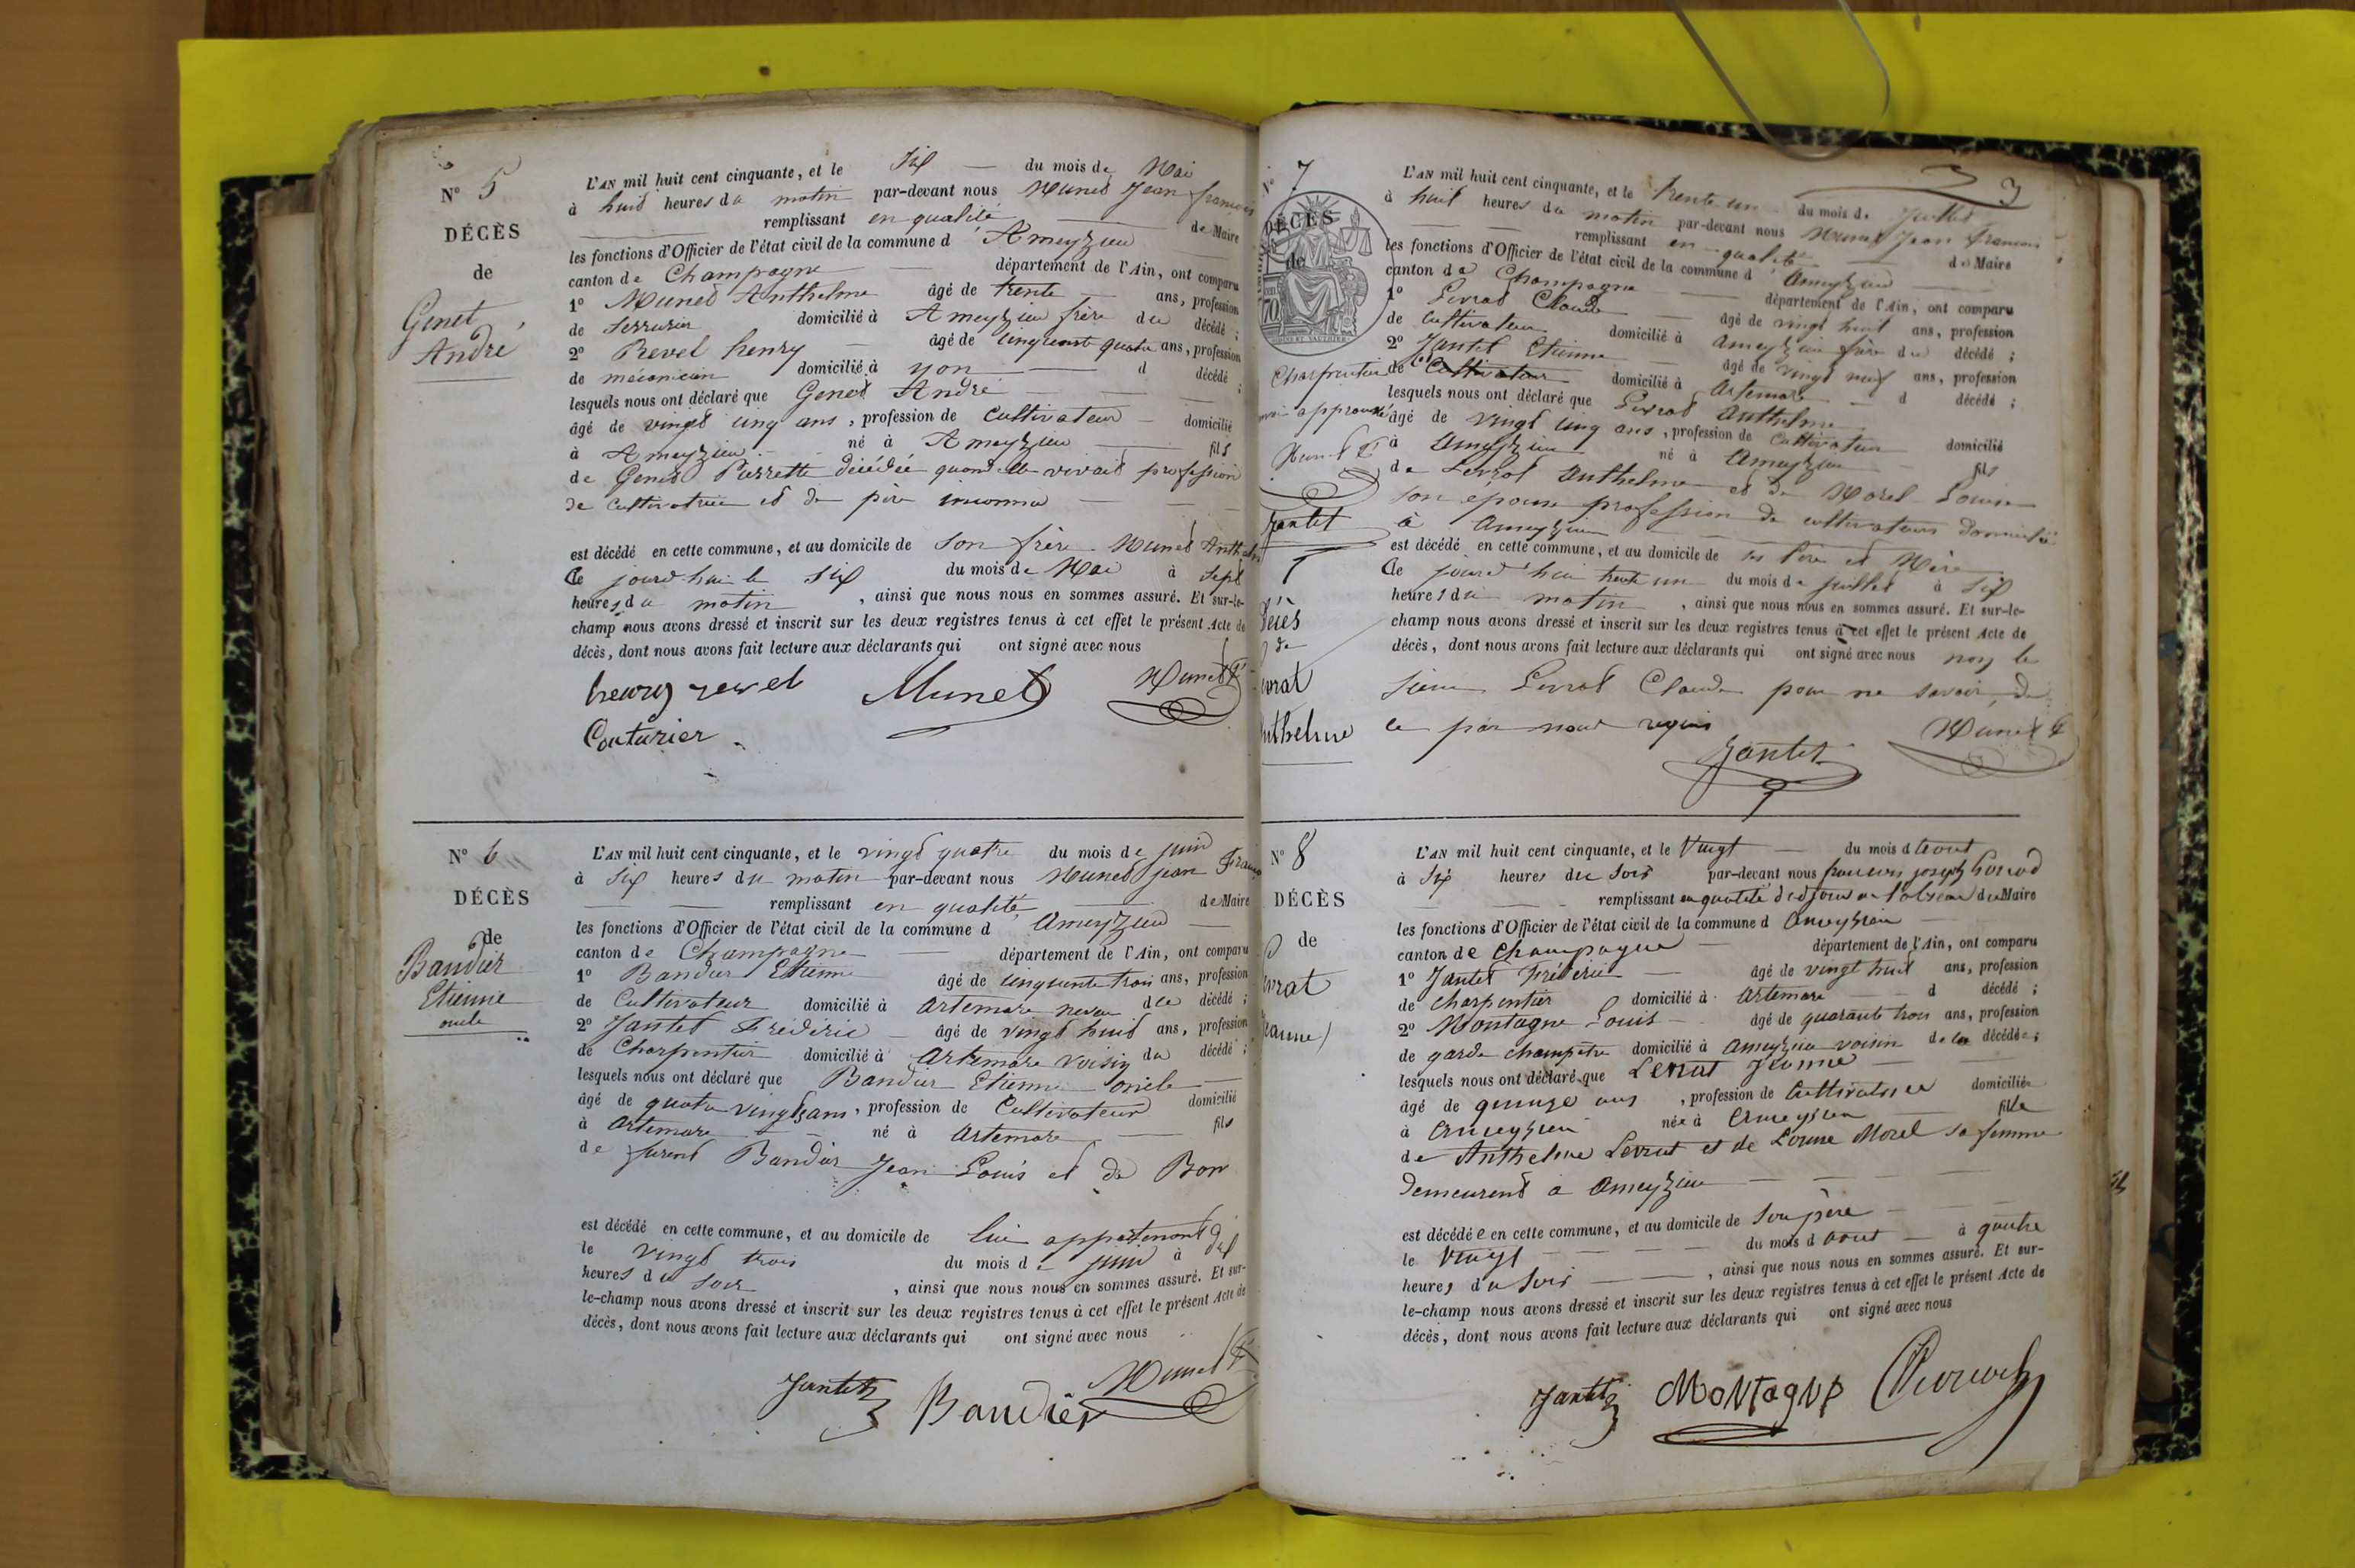 N° 5
DÉCÈS
de
Genet
André
L'AN mil huit cent cinquante, et le Six du mois de Mai
à huit heures du matin par-devant nous Munet Jean françois
remplissant en qualité de Maire
les fonctions d'Officier de l'état civil de la commune d Ameyzieu
canton de Champagne département de l'Ain, ont comparu
1° Munet Anthelme âgé de trente ans, profession
de Serrurier domicilié à Ameyzieu frère du décédé ;
2° Revel henry âgé de cinquante quatre ans, profession
de mécanicien domicilié à yon d décédé ;
lesquels nous ont déclaré que Genet André
âgé de vingt cinq ans, profession de Cultivateur domicilié
à Ameyzieu né à Ameyzieu fils
de Genet Pierrette décédée quand elle vivait profession
de cultivatrice et de père inconnu
est décédé en cette commune, et au domicile de son frère Munet Anthelme
Ce jourd'hui le six du mois de Mai à sept
heures du matin, ainsi que nous nous en sommes assuré. Et sur-le-
champ nous avons dressé et inscrit sur les deux registres tenus à cet effet le présent Acte de
décès, dont nous avons fait lecture aux déclarants qui ont signé avec nous
henry revel Munet Munet
Couturier
N° 6
DÉCÈS
de
Bandier
Etienne
oncle
L'AN mil huit cent cinquante, et le vingt quatre du mois de juin
à Six heures du matin par-devant nous Munet jean Franç
remplissant en qualité de Maire
les fonctions d'Officier de l'état civil de la commune d Ameyzieu
canton de Champagne département de l'Ain, ont comparu
1° Bandier Etienne âgé de cinquante trois ans, profession
de Cultivateur domicilié à Artemare neveu du décédé ;
2° Jantet Frédéric âgé de vingt huit ans, profession
de Charpentier domicilié à Artemare voisin du décédé ;
lesquels nous ont déclaré que Bandier Etienne oncle
âgé de quatre vingts ans, profession de Cultivateur domicilié
à Artemare né à Artemare fils
de furent Bandier Jean Louis et de Bon
est décédé en cette commune, et au domicile de lui appartenant
le vingt trois du mois de juin à dix
heures du soir, ainsi que nous nous en sommes assuré. Et sur-
le-champ nous avons dressé et inscrit sur les deux registres tenus à cet effet le présent Acte de
décès, dont nous avons fait lecture aux déclarants qui ont signé avec nous
Jantet Bandier Munet
3 3
N° 7
DÉCÈS
de
Charpentier
approuvé
Munet
Jantet
Décès
de
vrat
nthelme
L'AN mil huit cent cinquante, et le trente un du mois de Juillet
à huit heures du matin par-devant nous Munet Jean francois
remplissant en qualité de Maire
les fonctions d'Officier de l'état civil de la commune d Ameyzieu
canton de Champagne département de l'Ain, ont comparu
1° Levrat Claude âgé de vingt huit ans, profession
de cultivateur domicilié à Ameyzieu frère du décédé ;
2° Jantet Etienne âgé de vingt neuf ans, profession
de Cultivateur domicilié à Artemare d décédé ;
lesquels nous ont déclaré que Levrat Anthelme
âgé de vingt cinq ans, profession de Cultivateur domicilié
à Ameyzieu né à Ameyzieu fils
de Levrat Anthelme et de Morel Louise
son epouse profession de cultivateurs domiciliés
à Ameyzieu
est décédé en cette commune, et au domicile de ses Père et Mère
Ce jourd'hui trente un du mois de juillet à Six
heures du matin, ainsi que nous nous en sommes assuré. Et sur-le-
champ nous avons dressé et inscrit sur les deux registres tenus à cet effet le présent Acte de
décès, dont nous avons fait lecture aux déclarants qui ont signé avec nous non le
sieur Levrat Claude pour ne savoir, de
ce par nous requis
Jantet Munet
N° 8
DÉCÈS
de
vrat
eanne
L'AN mil huit cent cinquante, et le Vingt du mois d Aout
à Six heures du soir par-devant nous francois joseph
remplissant en qualité d'adjoint en l'absence du Maire
les fonctions d'Officier de l'état civil de la commune d Ameyzieu
canton de Champagne département de l'Ain, ont comparu
1° Jantet Fréderic âgé de vingt huit ans, profession
de charpentier domicilié à Artemare d décédé ;
2° Montagne Louis âgé de quarante trois ans, profession
de garde champêtre domicilié à Ameyzieu voisin de la décédée ;
lesquels nous ont déclaré que Levrat Jeanne
âgé de quinze ans, profession de Cultivatrice domiciliée
à Ameyzieu née à Ameyzieu fille
de Anthelme Levrat et de Louise Morel sa femme
demeurent à Ameyzieu
est décédée en cette commune, et au domicile de son père
le Vingt du mois d Aout à quatre
heures du soir, ainsi que nous nous en sommes assuré. Et sur-
le-champ nous avons dressé et inscrit sur les deux registres tenus à cet effet le présent Acte de
décès, dont nous avons fait lecture aux déclarants qui ont signé avec nous
Jantet Montagne